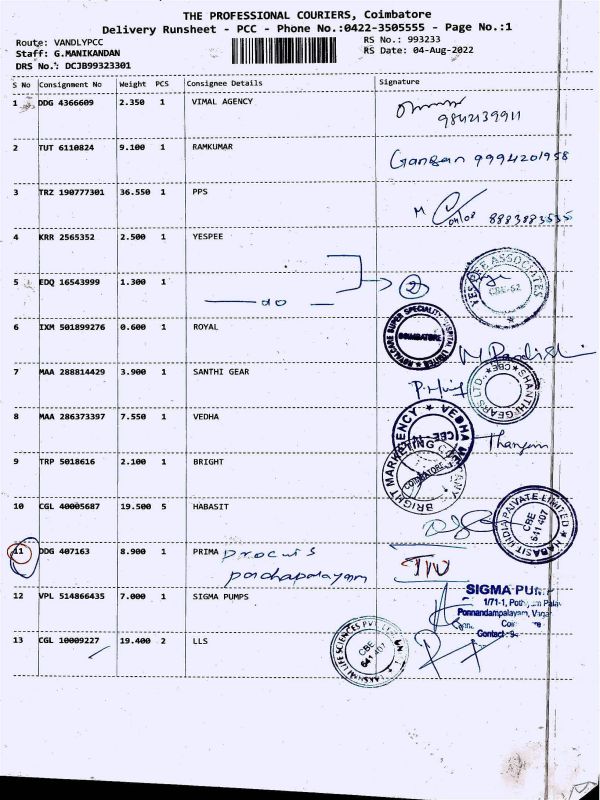 THE PROFESSIONAL COURIERS, Coimbatore
Delivery Runsheet - PCC - Phone No.:0422-3505555 - Page No.:1
Route: VANDLYPCC RS No.: 993233
Staff: G.MANIKANDAN RS Date: 04-Aug-2022
DRS No.: DCJB99323301
S No Consignment No Weight PCS Consignee Details Signature
1 DDG 4366609 2.350 1 VIMAL AGENCY
9842139911
2 TUT 6110824 9.100 1 RAMKUMAR 9994201958
3 TRZ 190777301 36.550 1 PPS M 04/08 8883883535
4 KRR 2565352 2.500 1 YESPEE
YES PEE ASSOCIATES CBE-62
5 EDQ 16543999 1.300 1 2
do
6 IXM 501899276 0.600 1 ROYAL
COIMBATORE
7 MAA 288814429 3.900 1 SANTHI GEAR
SHANTHI GEARS LTD., CBE
8 MAA 286373397 7.550 1 VEDHA
VEDHA AGENCY CBE
9 TRP 5018616 2.100 1 BRIGHT
BRIGHT MARKETING COMPANY COIMBATORE
10 CGL 40005687 19.500 5 HABASIT
HABASIT INDIA PRIVATE LIMITED CBE 641 407
11 DDG 407163 8.900 1 PRIMA
12 VPL 514866435 7.000 1 SIGMA PUMPS
SIGMA
1/71-1,
Ponnandampalayam,
Contact:
13 CGL 10009227 19.400 2 LLS
LAKSHMI LIFE SCIENCES CBE 641 407